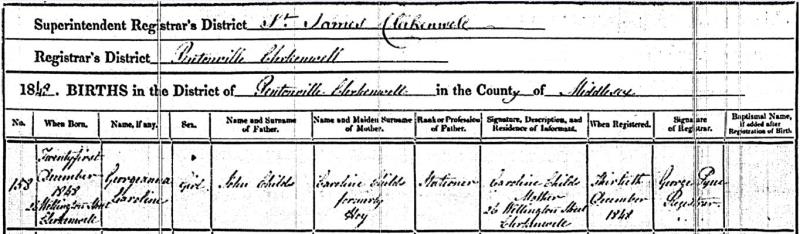 Superintendent Registrar's District St. James Clerkenwell
Registrar's District Pentonville Clerkenwell
1848. BIRTHS in the District of Pentonville Clerkenwell in the County of Middlesex
No. When Born. Name, if any. Sex. Name and Surname of Father. Name and Maiden Surname of Mother. Rank or Profession of Father. Signature, Description, and Residence of Informant. When Registered. Signature of Registrar. Baptismal Name, if added after Registration of Birth.
158 Twenty first December 1848 26 Wellington Street Clerkenwell Georgeanna Caroline Girl John Childs Caroline Childs formerly Stationer Caroline Childs Mother 26 Wellington Street Clerkenwell Thirtieth December 1848 George Pyne Registrar